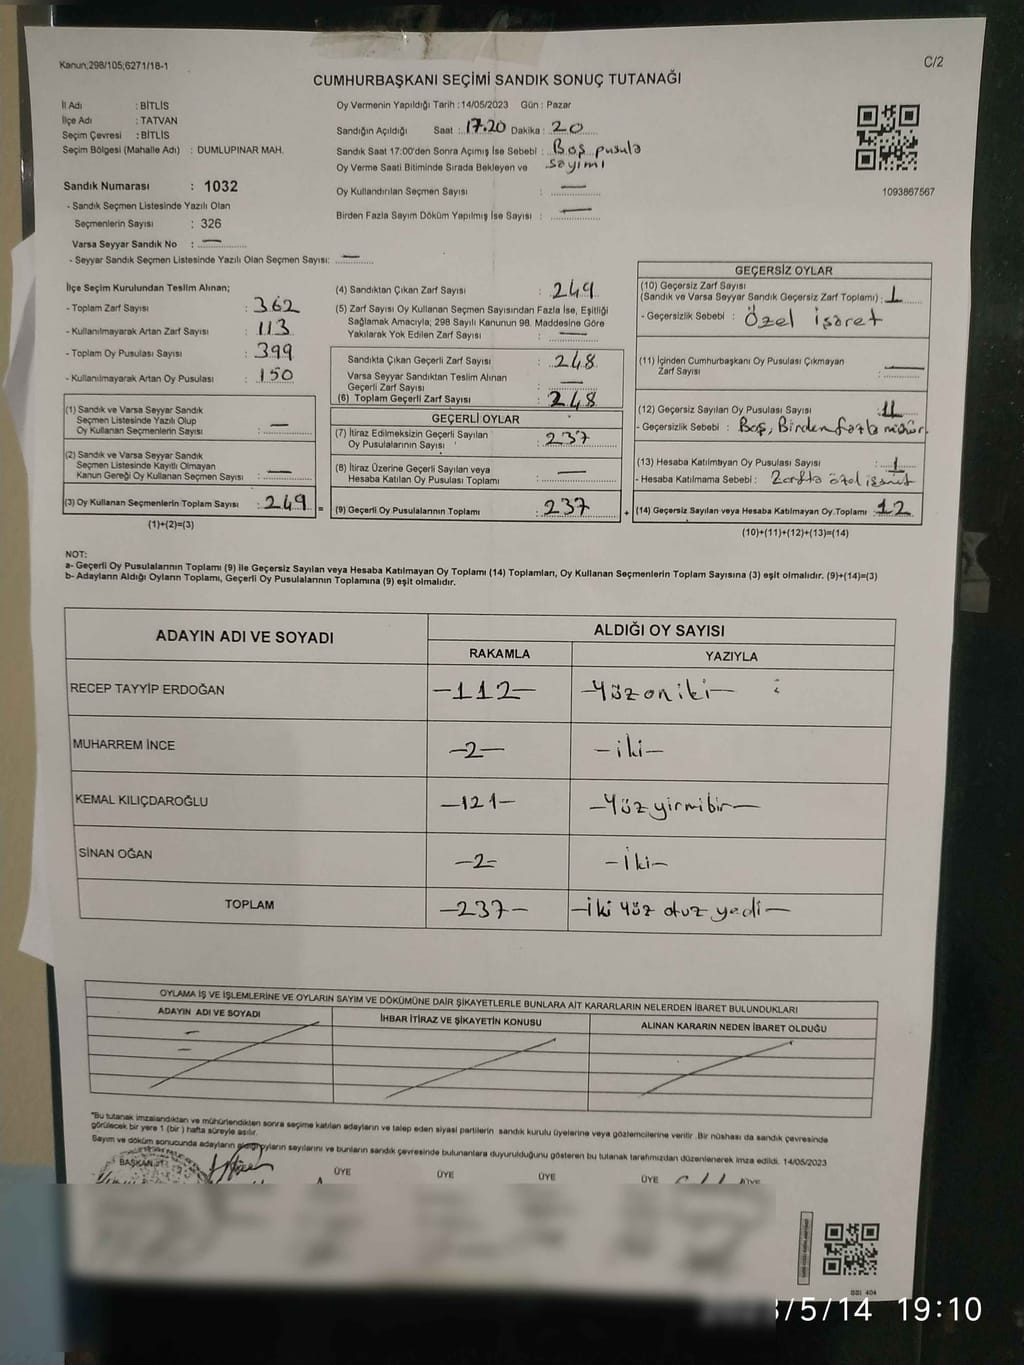 Kanun;298/105;6271/18-1
C/2
CUMHURBAŞKANI SEÇİMİ SANDIK SONUÇ TUTANAĞI
İl Adı : BİTLİS
İlçe Adı : TATVAN
Seçim Çevresi : BİTLİS
Seçim Bölgesi (Mahalle Adı) : DUMLUPINAR MAH.
Sandık Numarası : 1032
- Sandık Seçmen Listesinde Yazılı Olan
Seçmenlerin Sayısı : 326
Varsa Seyyar Sandık No : —
- Seyyar Sandık Seçmen Listesinde Yazılı Olan Seçmen Sayısı: —
Oy Vermenin Yapıldığı Tarih : 14/05/2023 Gün : Pazar
Sandığın Açıldığı Saat : 17.20 Dakika : 20
Sandık Saat 17:00'den Sonra Açımış İse Sebebi : Boş pusula
Oy Verme Saati Bitiminde Sırada Bekleyen ve sayımı
Oy Kullandırılan Seçmen Sayısı : —
Birden Fazla Sayım Döküm Yapılmış İse Sayısı : —
1093867567
İlçe Seçim Kurulundan Teslim Alınan;
- Toplam Zarf Sayısı : 362
- Kullanılmayarak Artan Zarf Sayısı : 113
- Toplam Oy Pusulası Sayısı : 399
- Kullanılmayarak Artan Oy Pusulası : 150
(1) Sandık ve Varsa Seyyar Sandık
Seçmen Listesinde Yazılı Olup
Oy Kullanan Seçmenlerin Sayısı : —
(2) Sandık ve Varsa Seyyar Sandık
Seçmen Listesinde Kayıtlı Olmayan
Kanun Gereği Oy Kullanan Seçmen Sayısı : —
(3) Oy Kullanan Seçmenlerin Toplam Sayısı : 249 =
(1)+(2)=(3)
(4) Sandıktan Çıkan Zarf Sayısı : 249
(5) Zarf Sayısı Oy Kullanan Seçmen Sayısından Fazla İse, Eşitliği
Sağlamak Amacıyla; 298 Sayılı Kanunun 98. Maddesine Göre
Yakılarak Yok Edilen Zarf Sayısı : —
Sandıkta Çıkan Geçerli Zarf Sayısı : 248
Varsa Seyyar Sandıktan Teslim Alınan
Geçerli Zarf Sayısı : —
(6) Toplam Geçerli Zarf Sayısı : 248
GEÇERLİ OYLAR
(7) İtiraz Edilmeksizin Geçerli Sayılan
Oy Pusulalarının Sayısı : 237
(8) İtiraz Üzerine Geçerli Sayılan veya
Hesaba Katılan Oy Pusulaları Toplamı : —
(9) Geçerli Oy Pusulalarının Toplamı : 237 +
GEÇERSİZ OYLAR
(10) Geçersiz Zarf Sayısı
(Sandık ve Varsa Seyyar Sandık Geçersiz Zarf Toplamı) : 1
- Geçersizlik Sebebi : Özel işaret
(11) İçinden Cumhurbaşkanı Oy Pusulası Çıkmayan
Zarf Sayısı : —
(12) Geçersiz Sayılan Oy Pusulası Sayısı : 11
- Geçersizlik Sebebi : Boş, Birden fazla mühür
(13) Hesaba Katılmayan Oy Pusulası Sayısı : 1
- Hesaba Katılmama Sebebi : Zarfta özel işaret
(14) Geçersiz Sayılan veya Hesaba Katılmayan Oy Toplamı : 12
(10)+(11)+(12)+(13)=(14)
NOT:
a- Geçerli Oy Pusulalarının Toplamı (9) ile Geçersiz Sayılan veya Hesaba Katılmayan Oy Toplamı (14) Toplamları, Oy Kullanan Seçmenlerin Toplam Sayısına (3) eşit olmalıdır. (9)+(14)=(3)
b- Adayların Aldığı Oyların Toplamı, Geçerli Oy Pusulalarının Toplamına (9) eşit olmalıdır.
ADAYIN ADI VE SOYADI
ALDIĞI OY SAYISI
RAKAMLA YAZIYLA
RECEP TAYYİP ERDOĞAN —112— —Yüzoniki—
MUHARREM İNCE —2— —iki—
KEMAL KILIÇDAROĞLU —121— —Yüzyirmibir—
SİNAN OĞAN —2— —İki—
TOPLAM —237— —İki yüz otuz yedi—
OYLAMA İŞ VE İŞLEMLERİNE VE OYLARIN SAYIM VE DÖKÜMÜNE DAİR ŞİKAYETLERLE BUNLARA AİT KARARLARIN NELERDEN İBARET BULUNDUKLARI
ADAYIN ADI VE SOYADI İHBAR İTİRAZ VE ŞİKAYETİN KONUSU ALINAN KARARIN NEDEN İBARET OLDUĞU
*Bu tutanak imzalandıktan ve mühürlendikten sonra seçime katılan adayların ve talep eden siyasi partilerin sandık kurulu üyelerine veya gözlemcilerine verilir. Bir nüshası da sandık çevresinde
görülecek bir yere 1 (bir) hafta süreyle asılır.
Sayım ve döküm sonucunda adayların aldığı oyların sayılarını ve bunların sandık çevresinde bulunanlara duyurulduğunu gösteren bu tutanak tarafımızdan düzenlenerek imza edildi. 14/05/2023
BAŞKAN ÜYE ÜYE ÜYE ÜYE ÜYE
/5/14 19:10